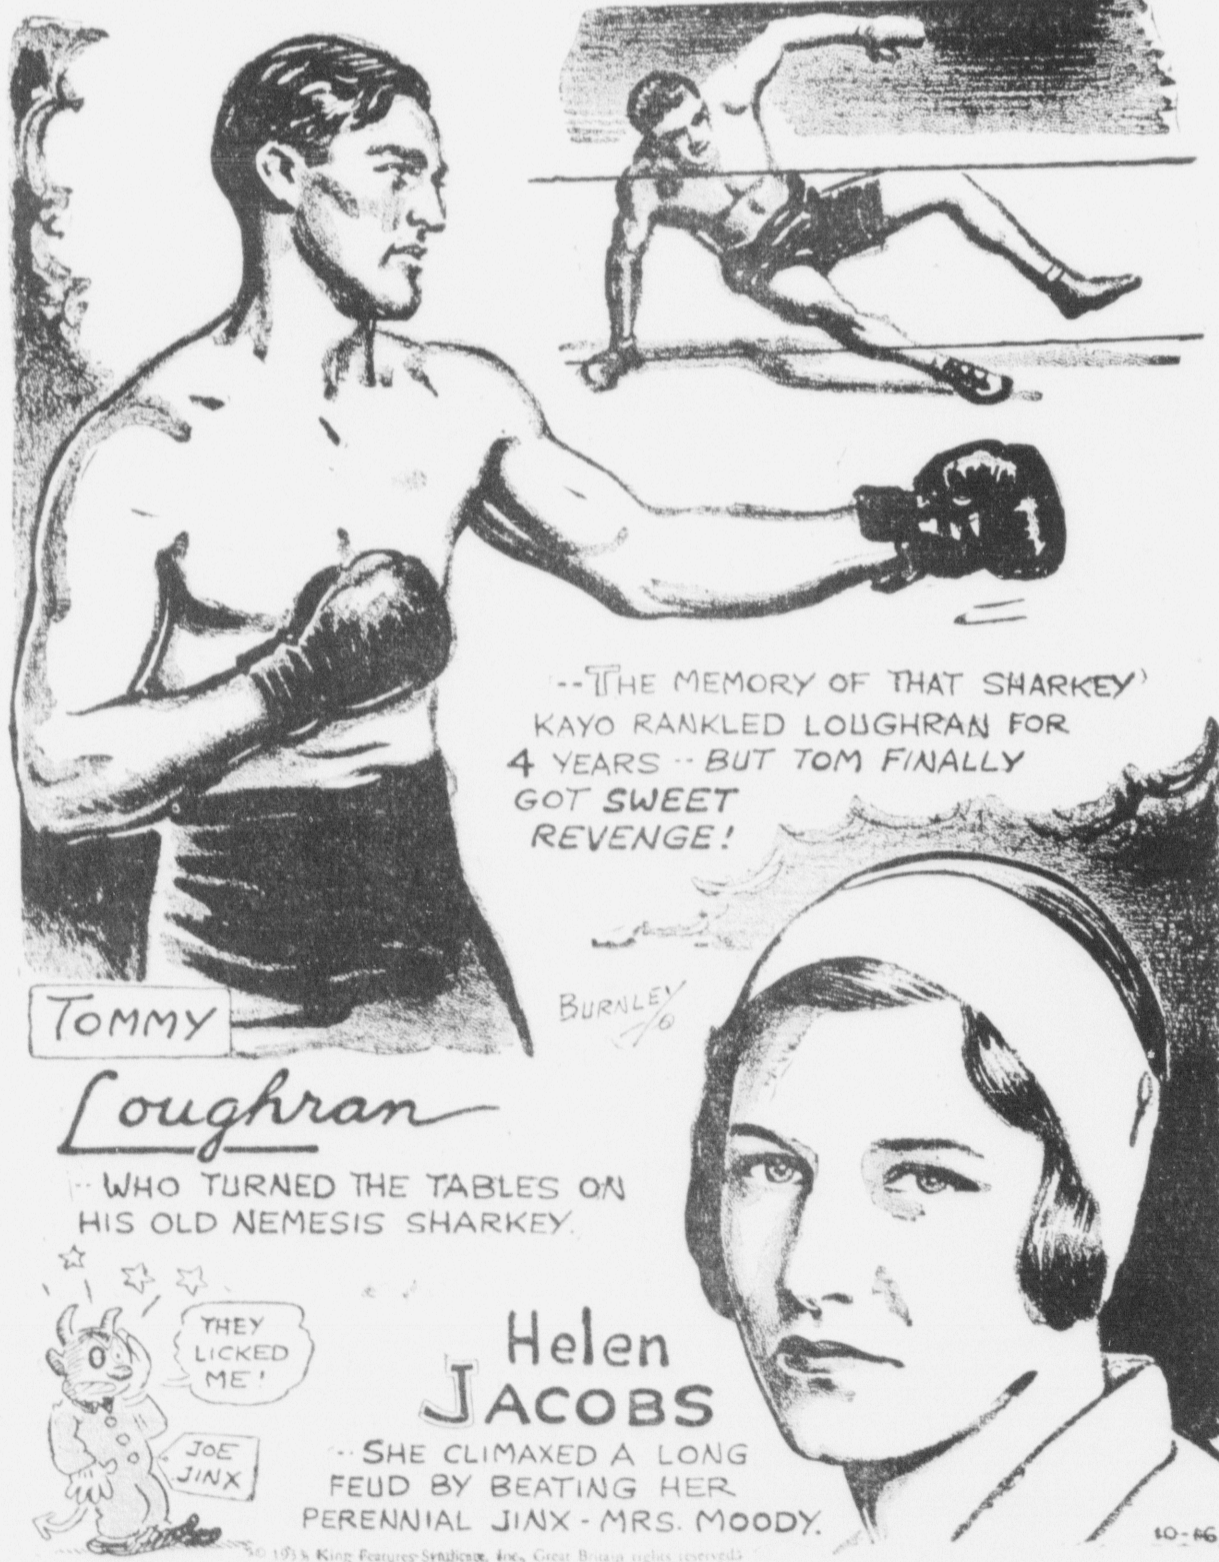 --THE MEMORY OF THAT SHARKEY
KAYO RANKLED LOUGHRAN FOR
4 YEARS -- BUT TOM FINALLY
GOT SWEET
REVENGE!
BURNLEY
TOMMY
Loughran
-- WHO TURNED THE TABLES ON
HIS OLD NEMESIS SHARKEY.
THEY
LICKED
ME!
JOE
JINX
Helen
JACOBS
--- SHE CLIMAXED A LONG
FEUD BY BEATING HER
PERENNIAL JINX - MRS. MOODY.
King Features Syndicate, Inc., Great Britain rights reserved